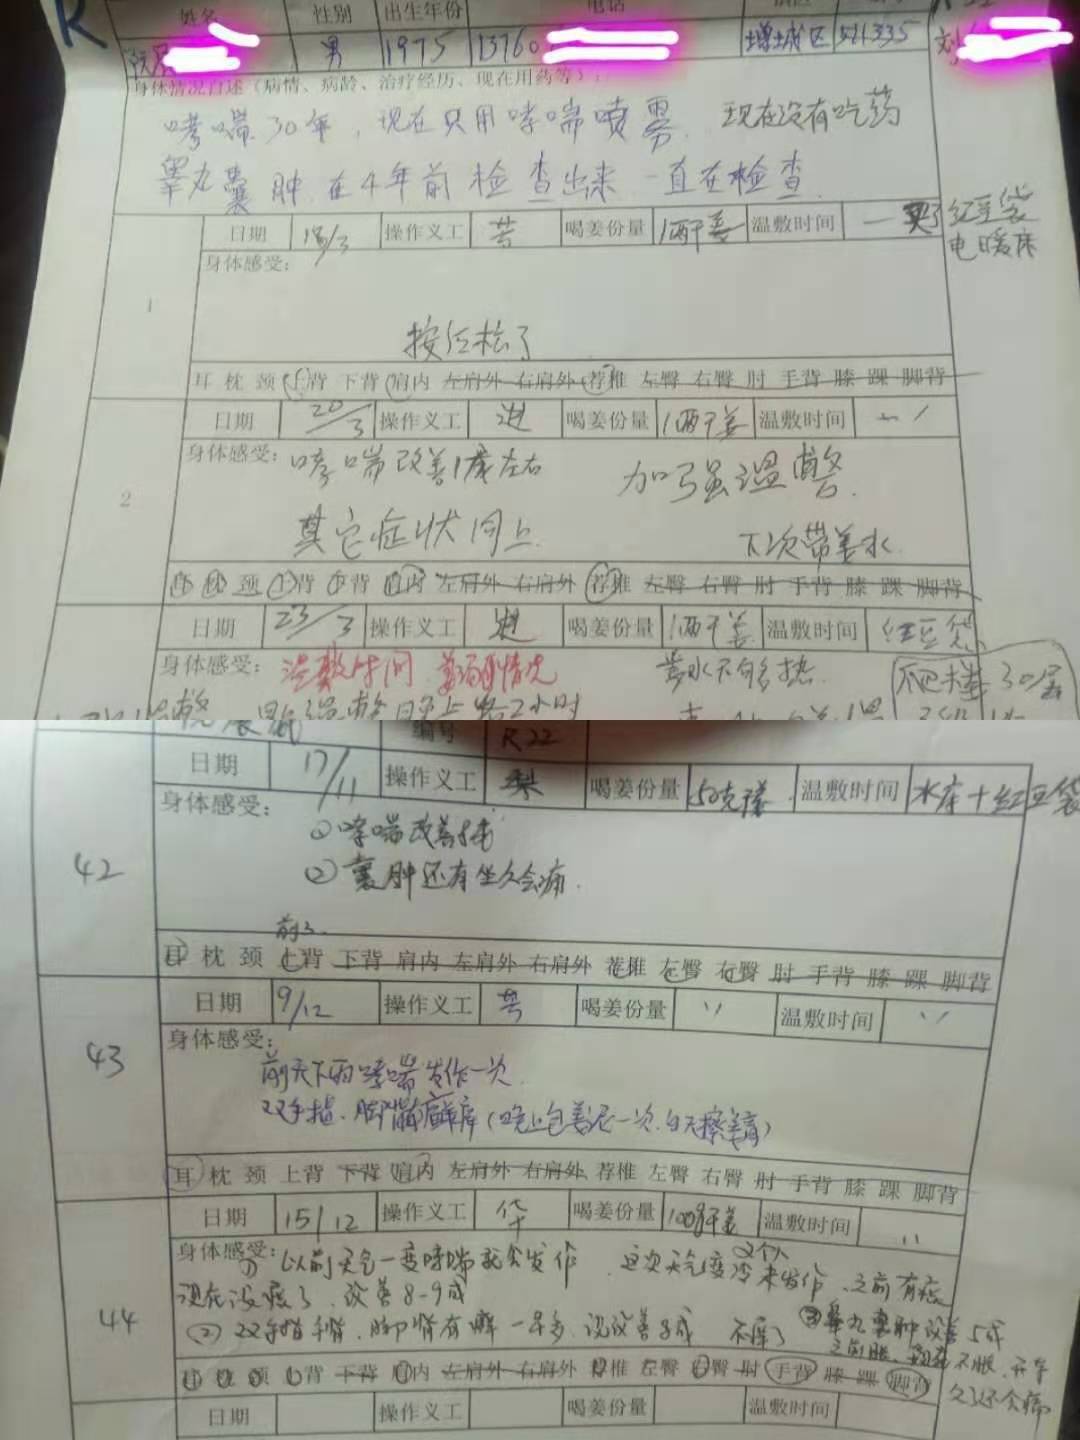 姓名 性别 出生年份 电话
男 1975 13760 增城区 511335 刘
身体情况自述（病情、病龄、治疗经历、现在用药等）：
哮喘30年，现在只用哮喘喷雾，现在没有吃药
睾丸囊肿在4年前检查出来 一直在检查
日期 18/3 操作义工 芸 喝姜份量 1两干姜 温敷时间 买了红豆袋
电暖床
1
身体感受：
按位松了
耳 枕 颈 上背 下背 肩内 左肩外 右肩外 荐椎 左臀 右臀 肘 手背 膝 踝 脚背
日期 20/3 操作义工 进 喝姜份量 1两干姜 温敷时间
2
身体感受：哮喘改善1成左右 加强温敷
其它症状同上 下次带姜水
耳 枕 颈 上背 下背 肩内 左肩外 右肩外 荐椎 左臀 右臀 肘 手背 膝 踝 脚背
日期 23/3 操作义工 进 喝姜份量 1两干姜 温敷时间 红豆袋
身体感受：温敷时间 姜水不够热 爬楼30层
编号 R22
日期 17/11 操作义工 喝姜份量 50克 温敷时间 水床+红豆袋
42
身体感受：
①哮喘改善8成
②囊肿还有坐久会痛
耳 枕 颈 上背 下背 肩内 左肩外 右肩外 荐椎 左臀 右臀 肘 手背 膝 踝 脚背
日期 9/12 操作义工 芸 喝姜份量 〃 温敷时间 〃
43
身体感受：
前天下雨哮喘发作一次
双手指、脚背癣痒(晚上包姜泥一次、白天擦姜膏)
耳 枕 颈 上背 下背 肩内 左肩外 右肩外 荐椎 左臀 右臀 肘 手背 膝 踝 脚背
日期 15/12 操作义工 华 喝姜份量 100g干姜 温敷时间 〃
44
身体感受：①以前天气一变哮喘就会发作，这次天气变冷未发作，之前有痰
现在没痰了，改善8-9成
②双手指手背、脚背有癣一年多，现改善8成 不痒了 ③睾丸囊肿改善5成
之前胀，现在不胀，开车
久了还会痛
耳 枕 颈 上背 下背 肩内 左肩外 右肩外 荐椎 左臀 右臀 肘 手背 膝 踝 脚背
日期 操作义工 喝姜份量 温敷时间